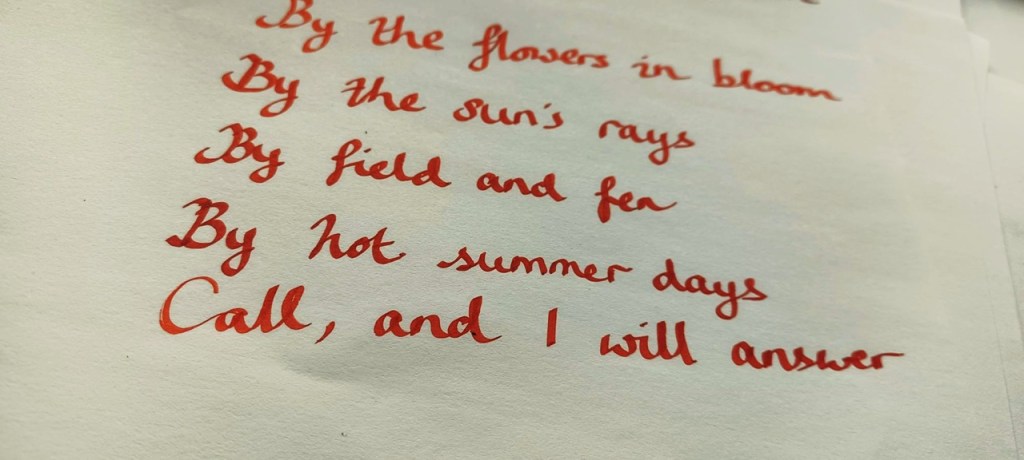 By the flowers in bloom
By the sun's rays
By field and fen
By hot summer days
Call, and I will answer